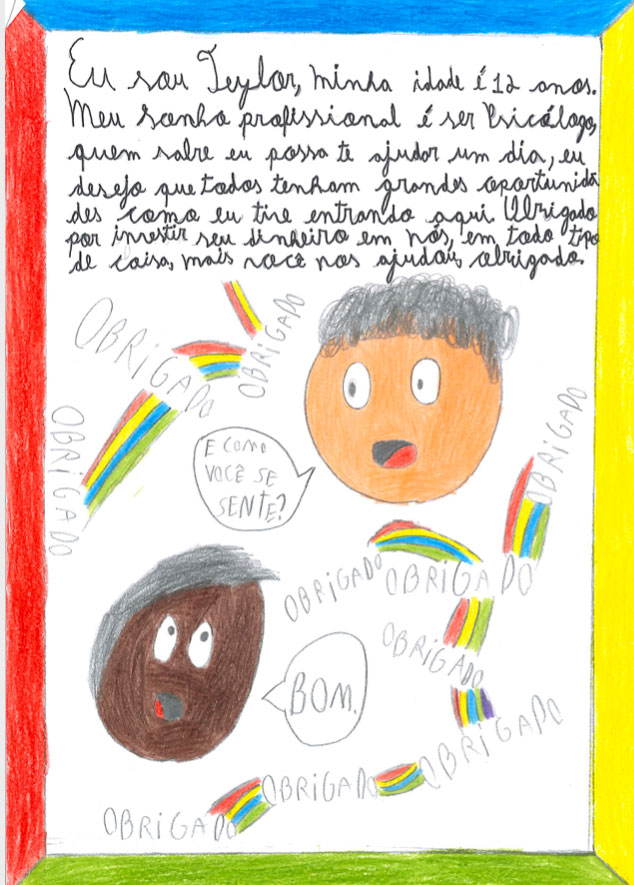 Eu sou Teylor, minha idade é 12 anos.
Meu sonho profissional é ser Psicólogo,
quem sabre eu possa te ajudar um dia, eu
desejo que todos tenham grandes oportunida
des como eu tive entrando aqui Obrigado
por investir seu dinheiro em nós, em todo tipo
de coisa, mais você nos ajudou, obrigado.
OBRIGADO
OBRIGADO
OBRIGADO
OBRIGADO
E COMO
VOCÊ SE
SENTE?
OBRIGADO
OBRIGADO
OBRIGADO
BOM.
OBRIGADO
OBRIGADO
OBRIGADO